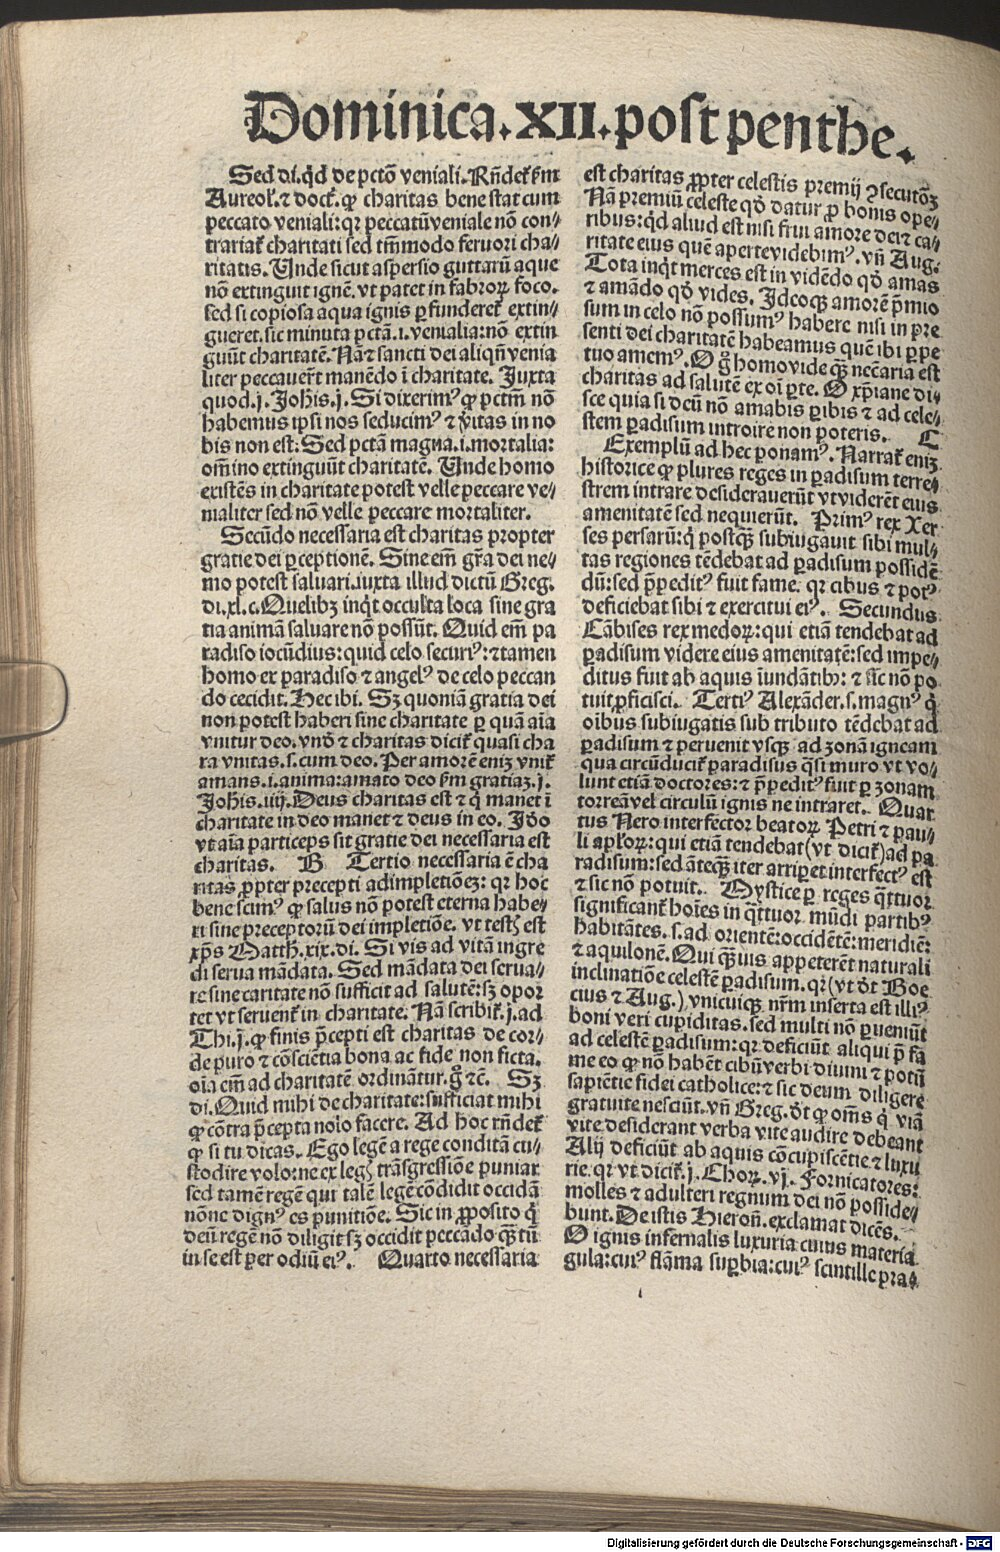 Dominica.XII.post penthe.
Sed di. qd̄ de pctō veniali. Rn̄detˀ ẜm
Aureoł. ⁊ doct̄. ꝙ charitas bene stat cum
peccato veniali: qꝛ peccatū veniale nō con⸗
trariat̄ charitati sed tm̄modo feruori cha⸗
ritatis. Unde sicut aspersio guttarū aque
nō extinguit ignē. vt patet in fabroꝝ foco.
sed si copiosa aqua ignis ꝑfunderet̄ extin⸗
gueret. sic minuta pctā .i. venialia: nō extin
guūt charitatē. Nā ⁊ sancti dei aliqn̄ venia
liter peccauert̄ manēdo ī charitate. Juxta
quod .j. Joh̄is .j. Si dixerimꝰ ꝙ pctm̄ nō
habemus ipsi nos seducimꝰ ⁊ v̄itas in no
bis non est: Sed pctā magna .i. mortalia:
om̄ino extinguūt charitatē. Unde homo
existēs in charitate potest velle peccare ve⸗
nialiter sed nō velle peccare mortaliter.
Secūdo necessaria est charitas propter
gratie dei ꝑceptionē. Sine em̄ gr̄a dei ne⸗
mo potest saluari. iuxta illud dictū Greg.
di. xl. c. Quelibꝫ inqt̄ occulta loca sine gra
tia animā saluare nō possūt. Quid em̄ pa
radiso iocūdius: quid celo securiꝰ: ⁊ tamen
homo ex paradiso ⁊ angelꝰ de celo peccan
do cecidit. Hec ibi. Sꝫ quoniā gratia dei
non potest haberi sine charitate ꝑ quā aīa
vnitur deo. vnō ⁊ charitas dicit̄ quasi cha
ra vnitas .s. cum deo. Per amorē enīꝫ vnit̄
amans .i. anima: amato deo ẜm gratiaꝫ .j.
Joh̄is. iiij. Deus charitas est ⁊ q̄ manet ī
charitate in deo manet ⁊ deus in eo. Idō
vt aīa particeps sit gratie dei necessaria est
charitas. B Tertio necessaria ē cha
ritas ꝓpter precepti adimpletiōeꝫ: qꝛ hoc
bene scimꝰ ꝙ salus nō potest eterna habe⸗
ri sine preceptorū dei impletiōe. vt testꝭ est
xp̄s Matth̄. xix. di. Si vis ad vitā ingre
di serua mādata. Sed mādata dei serua⸗
re sine caritate nō sufficit ad salutē: sꝫ opor
tet vt seruent̄ in charitate. Nā scribit̄ .j. ad
Thi. j. ꝙ finis p̄cepti est charitas de cor⸗
de puro ⁊ cōsciētia bona ac fide non ficta.
oīa em̄ ad charitatē ordinātur. gͦ ⁊c̄. Sꝫ
di. Quid mihi de charitate: sufficiat mihi
ꝙ cōtra p̄cepta nolo facere. Ad hoc rn̄det̄
ꝙ si tu dicas. Ego legē a rege conditā cu⸗
stodire volo: ne ex legꝭ trāsgressiōe puniar
sed tamē regē qui talē legē cōdidit occidā
nōne dignꝰ es punitiōe. Sic in ꝓposito q̄
deū regē nō diligit sꝫ occidit peccādo qꝫtū
in se est per odiū eiꝰ. Quarto necessaria
est charitas ꝓpter celestis premij ꝯsecutōꝫ
Nā premiū celeste qd̄ datur ꝓ bonis ope⸗
ribus: qd̄ aliud est nisi frui amore dei ⁊ ca⸗
ritate eius quē aperte videbimꝰ. vn̄ Aug.
Tota inqt̄ merces est in vidēdo qd̄ amas
⁊ amādo qd̄ vides. Idcoqꝫ amorē p̄mio
sum in celo nō possumꝰ habere nisi in pre
senti dei charitatē habeamus quē ibi ꝑpe
tuo amemꝰ. O gͦ homo vide qꝫ necēaria est
charitas ad salutē ex oī ꝑte. O xp̄iane di⸗
sce quia si deū nō amabis ꝑibis ⁊ ad cele⸗
stem ꝑadisum introire non poteris. C
Exemplū ad hec ponamꝰ. Narrat̄ enīꝫ
historice ꝙ plures reges in ꝑadisum terre⸗
strem intrare desiderauerūt vt viderēt eius
amenitatē sed nequierūt. Primꝰ rex Xer
ses persarū: q̄ postqꝫ subiugauit sibi mul⸗
tas regiones tēdebat ad ꝑadisum possidē
dū: sed p̄peditꝰ fuit fame. qꝛ cibus ⁊ potꝰ
deficiebat sibi ⁊ exercitui eiꝰ. Secundus
Cābises rex medoꝝ: qui etiā tendebat ad
ꝑadisum videre eius amenitatē: sed impe⸗
ditus fuit ab aquis īundātibꝰ: ⁊ sic nō po
tuit ꝓficisci. Tertiꝰ Alexāder .s. magnꝰ q̄
oībus subiugatis sub tributo tēdebat ad
ꝑadisum ⁊ peruenit vsqꝫ ad zonā igneam
qua circūducit̄ paradisus qͣsi muro vt vo⸗
lunt etiā doctores: ⁊ p̄peditꝰ fuit ꝑ zonam
torreā vel circulū ignis ne intraret. Quar
tus Nero interfector beatoꝝ Petri ⁊ pau⸗
li apl̄oꝝ: qui etiā tendebat (vt dicit̄) ad pa
radisum: sed āteqꝫ iter arriperet interfectꝰ est
⁊ sic nō potuit. Mystice ꝑ reges qͣttuor
significant̄ hoīes in qͣttuor mūdi partibꝰ
habitātes .s. ad orientē: occidētē: meridiē:
⁊ aquilonē. Qui qꝫuis appeterēt naturali
inclinatiōe celestē ꝑadisum. qꝛ (vt dt̄ Boe
cius ⁊ Aug.) vnicuiqꝫ nr̄m inserta est illiꝰ
boni veri cupiditas. sed multi nō ꝑueniūt
ad celestē ꝑadisum: qꝛ deficiūt aliqui p̄ fa
me eo ꝙ nō habēt cibū verbi diuini ⁊ potū
sapiētie fidei catholice: ⁊ sic deum diligere
gratuite nesciūt. vn̄ Greg. dt̄ ꝙ om̄s q̄ viā
vite desiderant verba vite audire debeant
Alij deficiūt ab aquis cōcupiscētie ⁊ luxu
rie. qꝛ vt dicit̄ .j. Choꝝ. vj. Fornicatores:
molles ⁊ adulteri regnum dei nō posside⸗
bunt. De istis Hieron̄. exclamat dicēs.
O ignis infernalis luxuria cuius materia
gula: cuiꝰ flāma suꝑbia: cuiꝰ scintille pra⸗
Digitalisierung gefördert durch die Deutsche Forschungsgemeinschaft - DFG